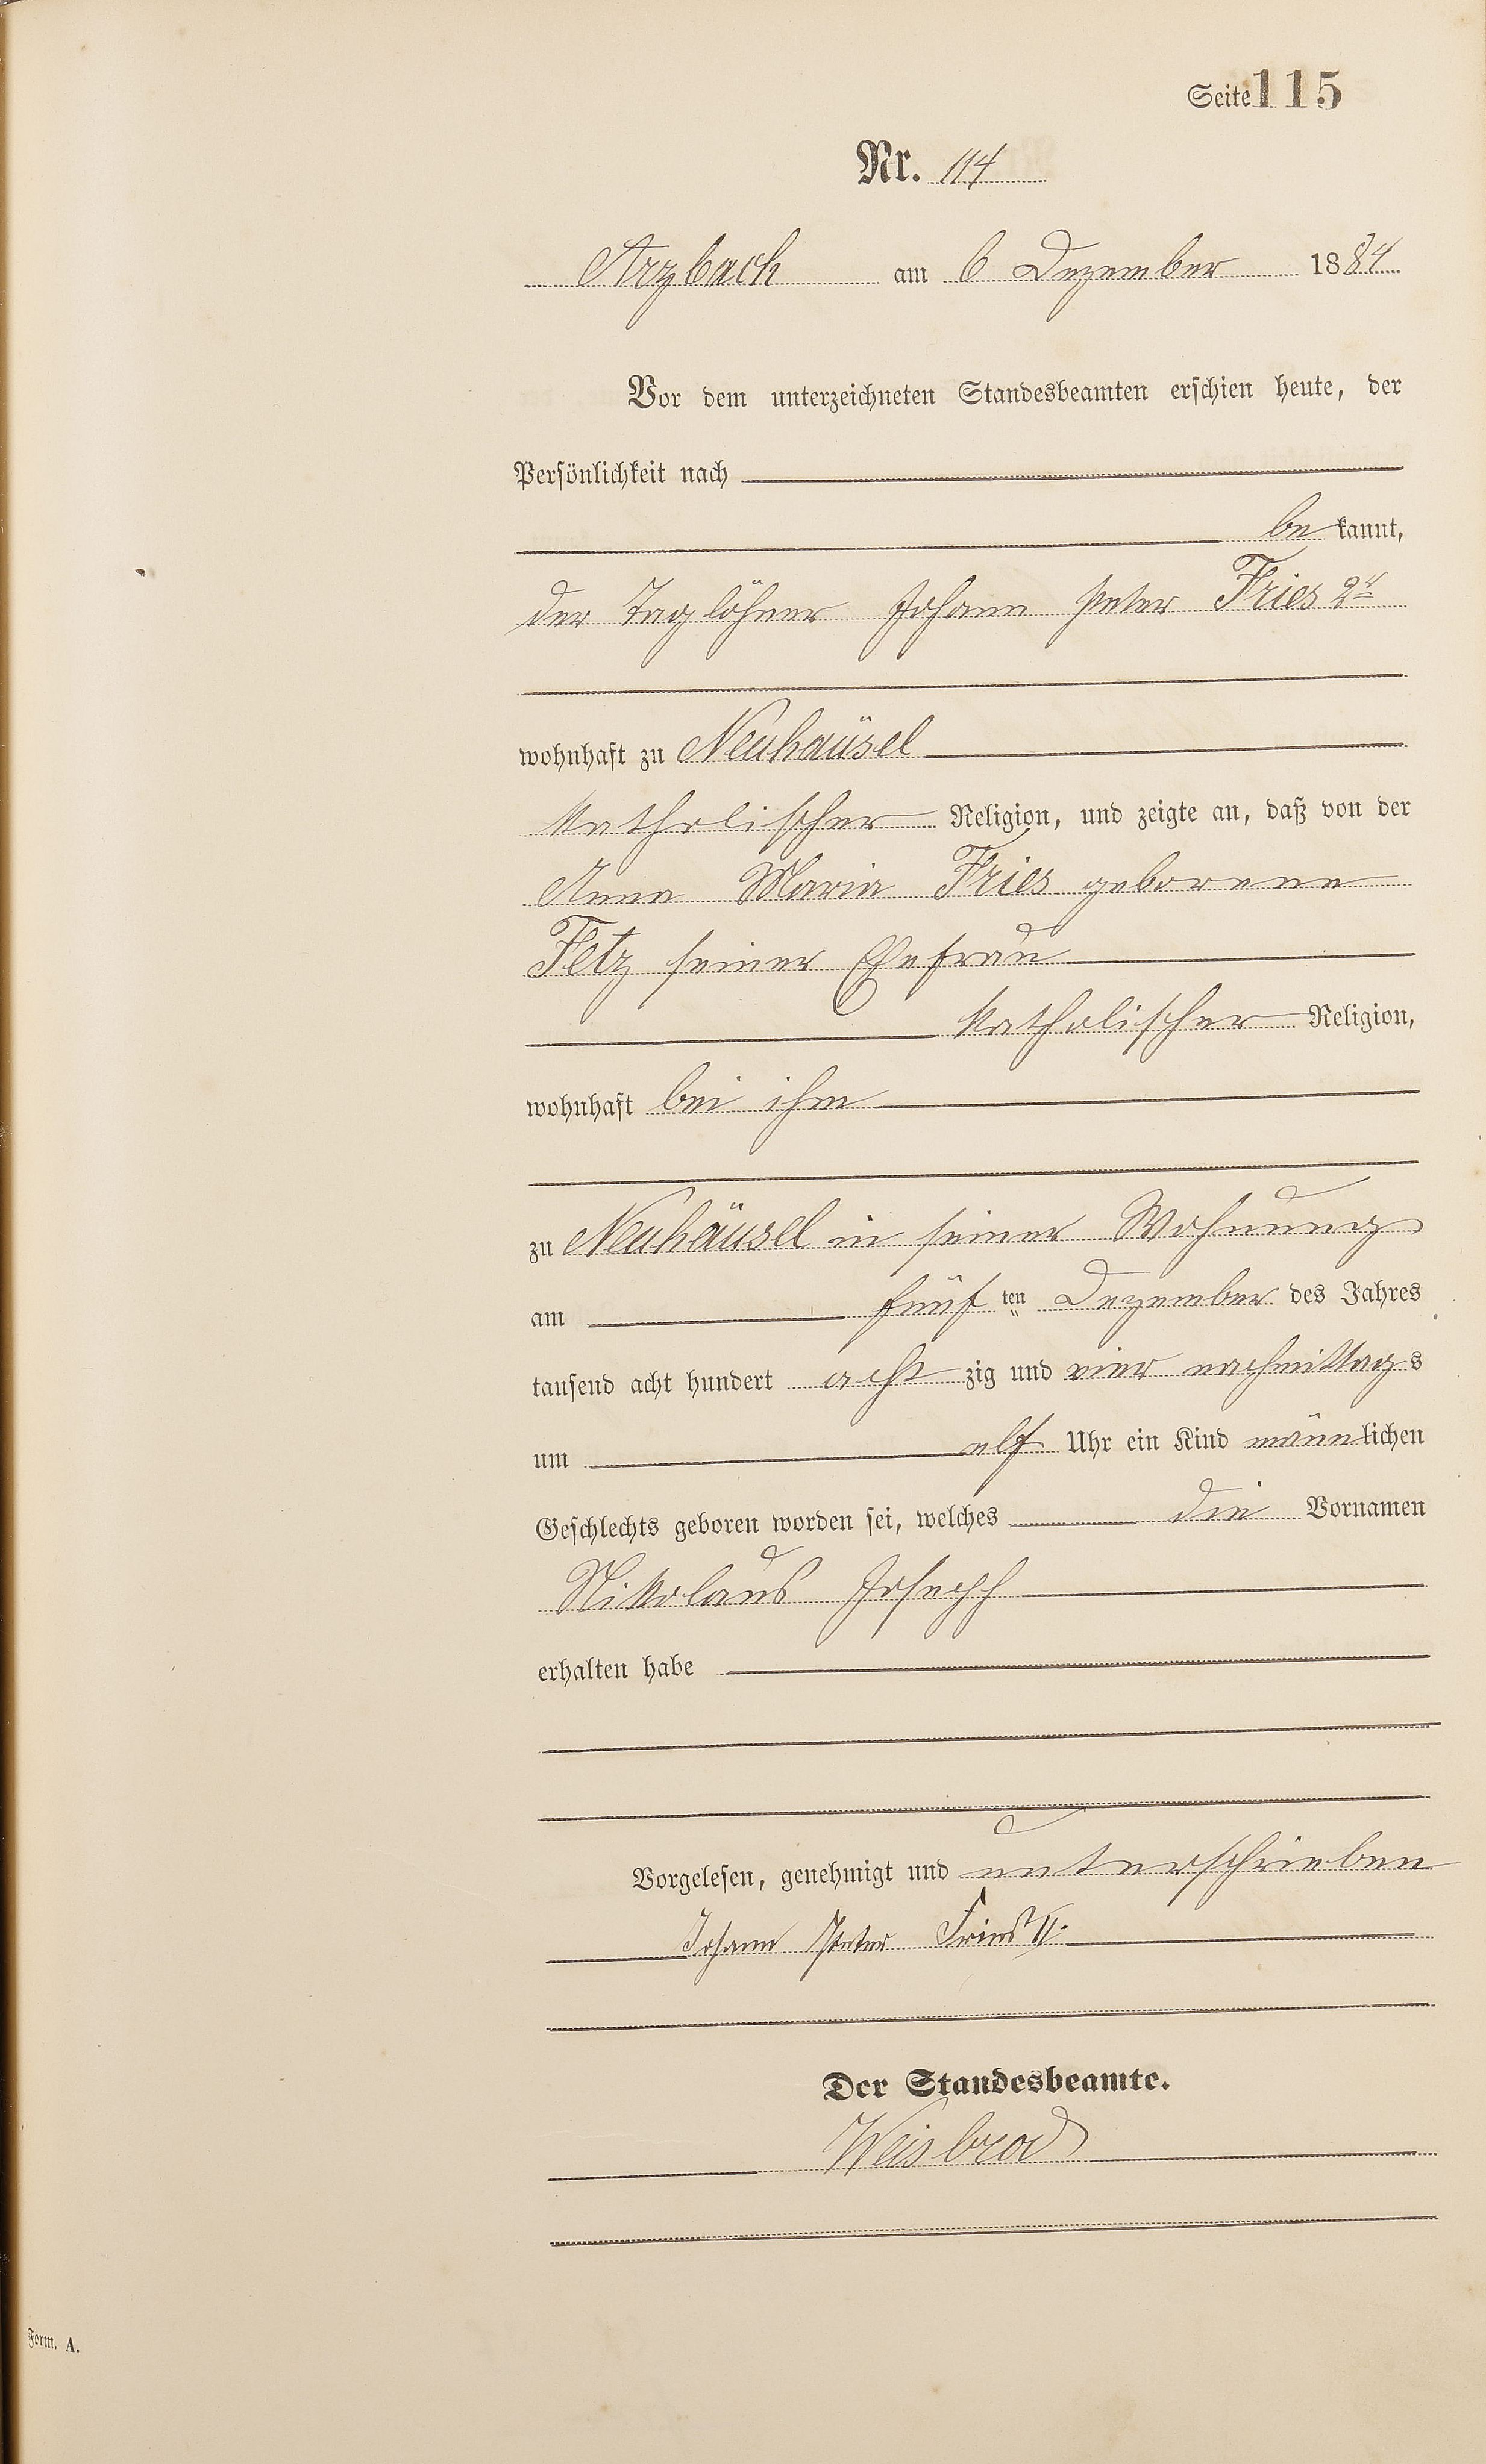 Seite 115
Nr. 114
Arzbach am 6 Dezember 1884
Vor dem unterzeichneten Standesbeamten erschien heute, der
Persönlichkeit nach
be kannt,
der Taglöhner Johann Peter Fries 2r
wohnhaft zu Neuhaüsel
katholischer Religion, und zeigte an, daß von der
Anna Maria Fries geborene
Fetz seiner Ehefrau
katholischer Religion,
wohnhaft bei ihm
zu Neuhäusel in seiner Wohnung
am fünf ten Dezember des Jahres
tausend acht hundert acht zig und vier nachmittags
um elf Uhr ein Kind männlichen
Geschlechts geboren worden sei, welches die Vornamen
Nikolaus Joseph
erhalten habe
Vorgelesen, genehmigt und unterschrieben
Johann Peter Fries II.
Der Standesbeamte.
Weisbrod
Form. A.